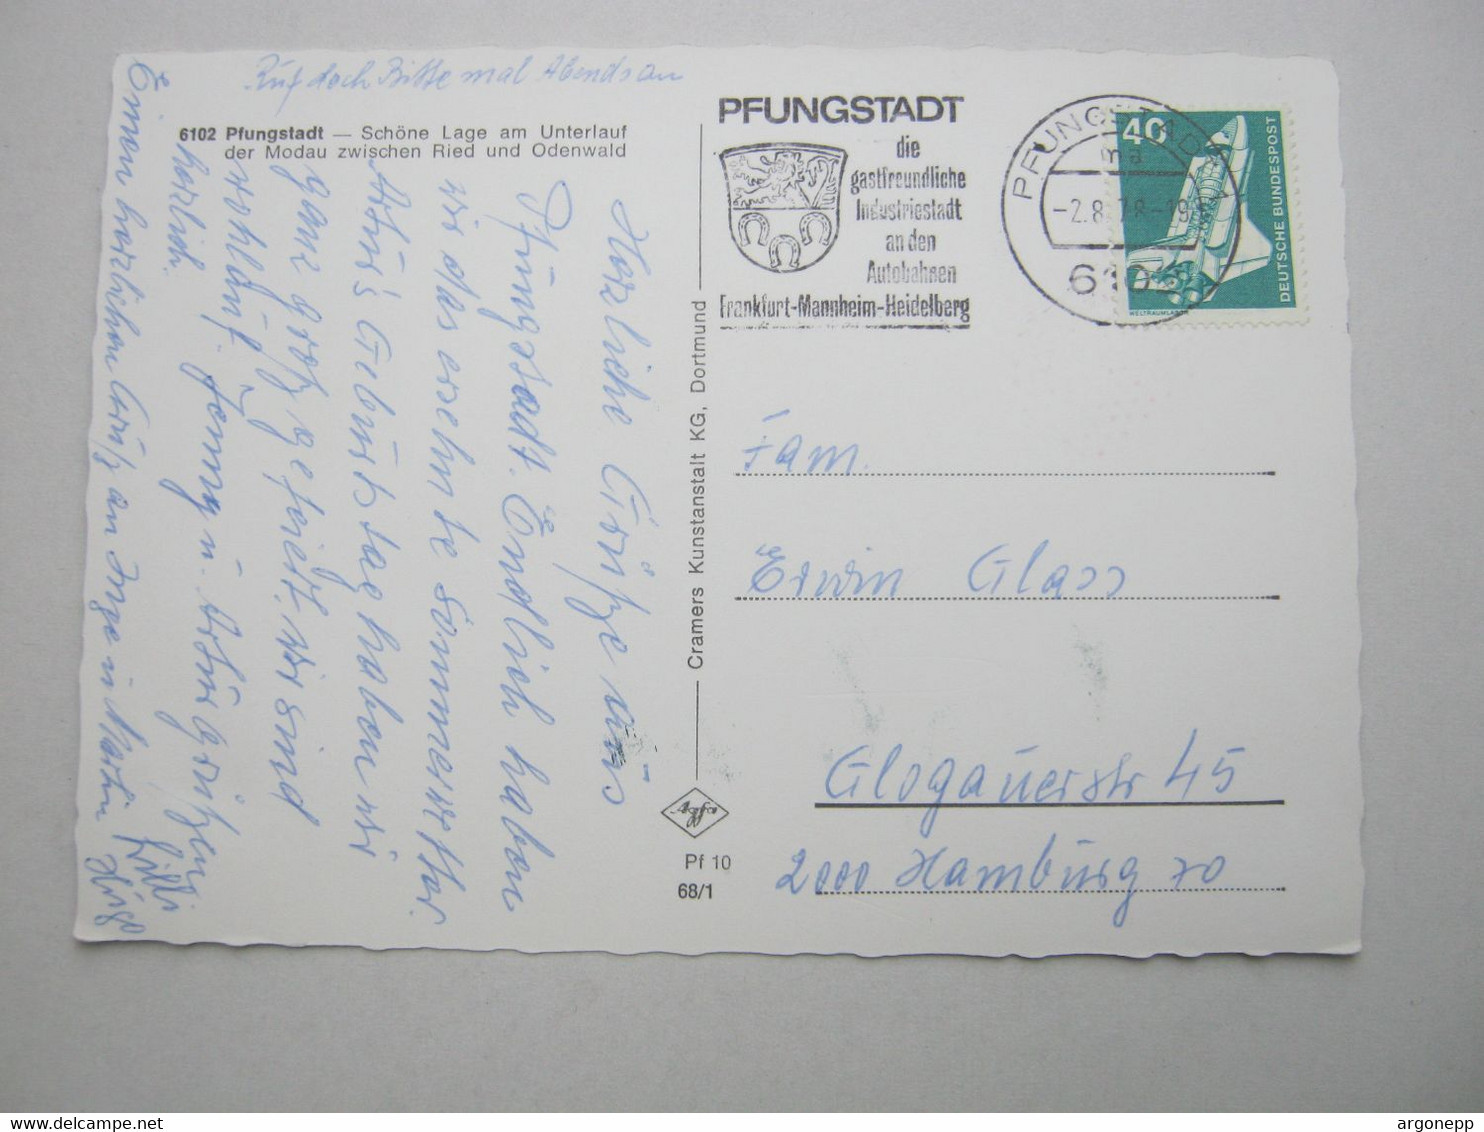 Ruf doch Bitte mal Abends an
6102 Pfungstadt — Schöne Lage am Unterlauf
der Modau zwischen Ried und Odenwald
Herzliche Grüße aus
Pfungstadt. Endlich haben
wir das ersehnte Sommerwetter.
Geburtstag haben wir
ganz groß gefeiert. Wir sind
wohlauf.
Jenny u. Arthur grüßen
herzlich.
Einen herzlichen Gruß an Inge u Martin
Lilli
Hugo
Cramers Kunstanstalt KG, Dortmund
Pf 10
68/1
PFUNGSTADT
die
gastfreundliche
Industriestadt
an den
Autobahnen
Frankfurt-Mannheim-Heidelberg
PFUNGSTADT
ma
-2.8.78-19
6102
40
DEUTSCHE BUNDESPOST
WELTRAUMLABOR
Fam.
Erwin Glass
Glogauerstr 45
2000 Hamburg 70
www.delcampe.net
argonepp